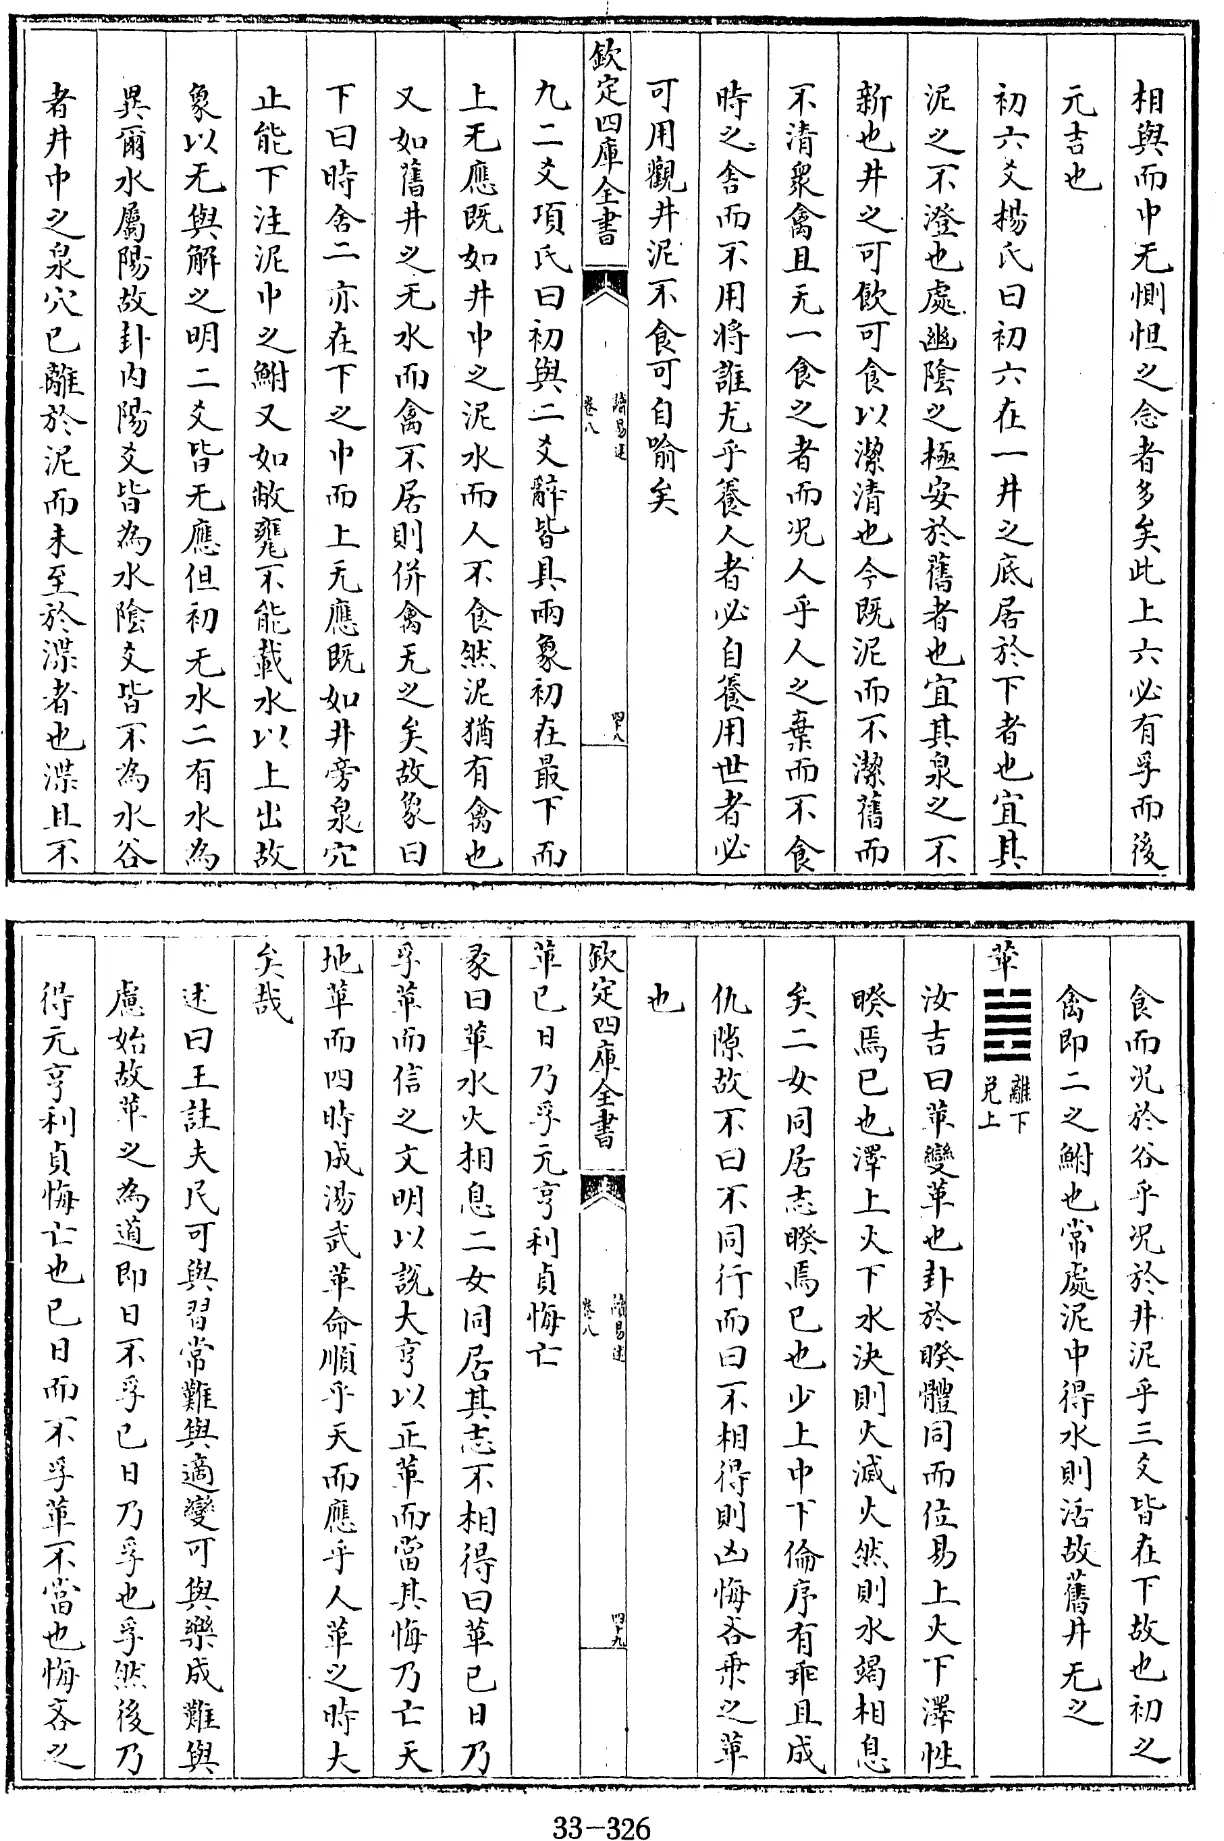 相與而中无惻怛之念者多矣此上六必有孚而後
元吉也
初六爻楊氏曰初六在一井之底居於下者也宜其
泥之不澄也處幽陰之極安於舊者也宜其泉之不
新也井之可飲可食以潔清也今既泥而不潔舊而
不清衆禽且无一食之者而况人乎人之棄而不食
時之舍而不用將誰尤乎養人者必自養用世者必
可用觀井泥不食可自喻矣
欽定四庫全書
讀易述
卷八
四十八
九二爻項氏曰初與二爻辭皆具兩象初在最下而
上无應既如井中之泥水而人不食然泥猶有禽也
又如舊井之无水而禽不居則併禽无之矣故象曰
下曰時舍二亦在下之中而上无應既如井旁泉穴
止能下注泥中之鮒又如敝甕不能載水以上出故
象以无與解之明二爻皆无應但初无水二有水為
異爾水屬陽故卦内陽爻皆為水陰爻皆不為水谷
者井中之泉穴已離於泥而未至於渫者也渫且不
食而况於谷乎况於井泥乎三爻皆在下故也初之
禽即二之鮒也常處泥中得水則活故舊井无之
革䷰離下
兌上
汝吉曰革變革也卦於睽體同而位易上火下澤性
睽焉已也澤上火下水決則火滅火然則水竭相息
矣二女同居志睽焉已也少上中下倫序有乖且成
仇隙故不曰不同行而曰不相得則凶悔吝乘之革
也
欽定四庫全書
讀易述
卷八
四十九
革已日乃孚元亨利貞悔亡
彖曰革水火相息二女同居其志不相得曰革已日乃
孚革而信之文明以說大亨以正革而當其悔乃亡天
地革而四時成湯武革命順乎天而應乎人革之時大
矣哉
述曰王註夫民可與習常難與適變可與樂成難與
慮始故革之為道即日不孚已日乃孚也孚然後乃
得元亨利貞悔亡也已日而不孚革不當也悔吝之
33-326